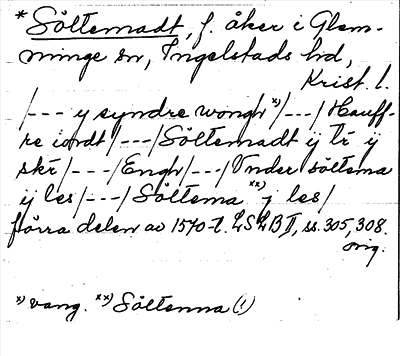 * Söltemadt, f. åker i Glem-
minge sn, Ingelstads hd,
Krist. l.
/--- y syndre wongh x)/---/ Hauff-
re iordt/---/Söltemadt ij tr ij
skr/---/Engh/---/Vnder söltema
ij les/---/Söltema xx) j les/
förra delen av 1570-t. LSLB II, ss. 305, 308.
orig.
x) vang. xx) Söltenna (!)